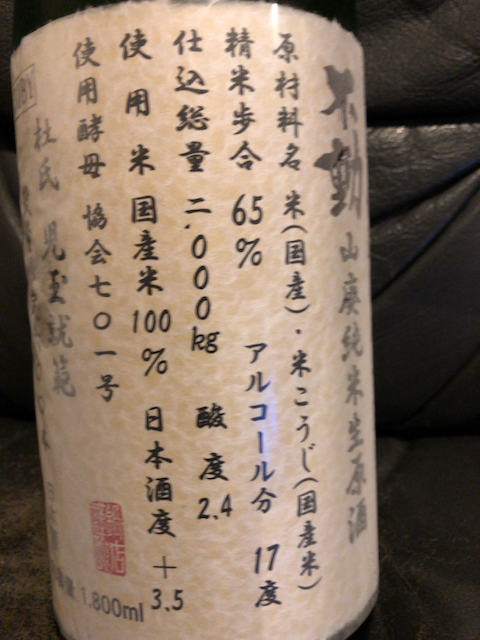 不動 山廃純米生原酒
原材料名 米(国産)・米こうじ(国産米)
精米歩合 65% アルコール分 17度
仕込総量 二.000kg 酸度 2.4
使用米 国産米100% 日本酒度 +3.5
使用酵母 協会七〇一号
杜氏 児玉
BY
1.800ml